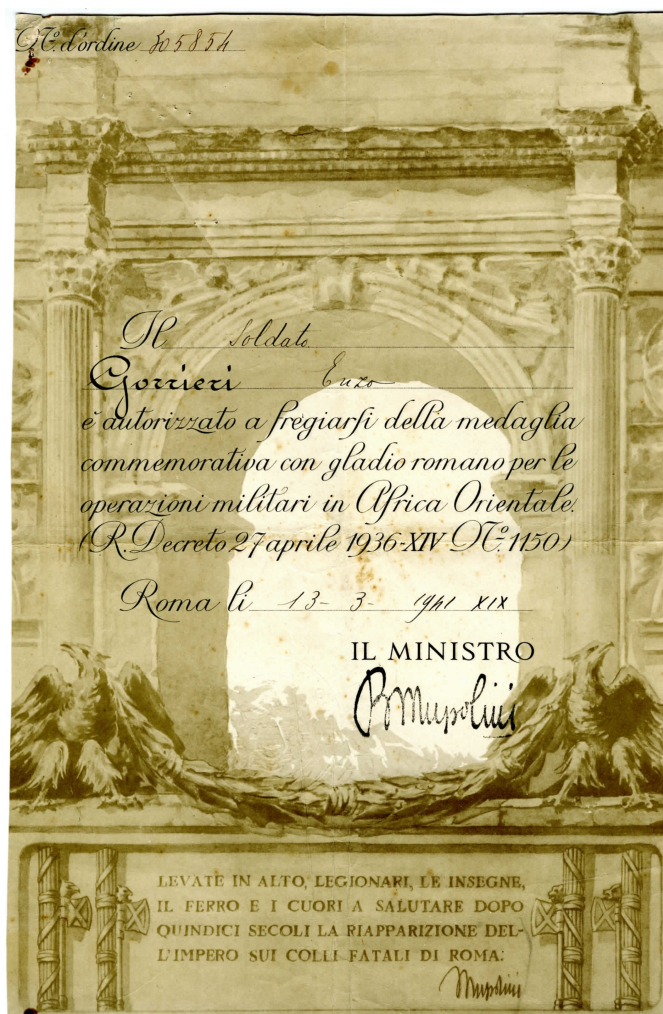 N.º d'ordine 305854
Il Soldato
Gorrieri Enzo
è autorizzato a fregiarsi della medaglia
commemorativa con gladio romano per le
operazioni militari in Africa Orientale.
(R. Decreto 27 aprile 1936-XIV N.º 1150)
Roma li 13-3-1941 XIX
IL MINISTRO
B Mussolini
LEVATE IN ALTO, LEGIONARI, LE INSEGNE,
IL FERRO E I CUORI A SALUTARE DOPO
QUINDICI SECOLI LA RIAPPARIZIONE DEL-
L'IMPERO SUI COLLI FATALI DI ROMA.
Mussolini